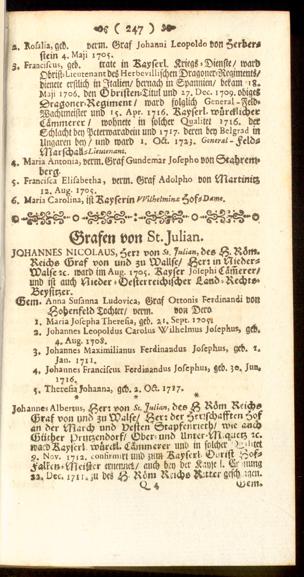 ( 247 )
2. Rosalia, geb. verm. Graf Johanni Leopoldo von Herber-
stein 4. Maji 1705.
3. Franciscus, geb. trate in Kayserl. Kriegs-Dienste, ward
Obrist-Lieutenant des Herbevillischen Dragoner-Regiments/
dienete erstlich in Italien/ hernach in Spannien/ bekam 18.
Maji 1706. den Obristen-Titul und 27. Dec. 1709. obiges
Dragoner-Regiment/ ward folglich General-Feld-
Wachtmeister und 15. Apr. 1716. Kayserl. würcklicher
Cämmerer/ wohnete in solcher Qualitet 1716. der
Schlacht bey Peterwaradein und 1717. deren bey Belgrad in
Ungarn bey/ und ward 1. Oct. 1723. General-Feld-
Marschall-Lieutenant.
4. Maria Antonia, verm. Graf Gundemar Josepho von Stahrem-
berg.
5. Francisca Elisabetha, verm. Graf Adolpho von Martinitz
12. Aug. 1705.
6. Maria Carolina, ist Kayserin Wilhelminæ Hof-Dame.
Grafen von St. Julian.
JOHANNES NICOLAUS, Herr von St. Julian, des H. Röm.
Reichs Graf von und zu Wallse/ Herr in Nieder-
Walse ꝛc. ward im Aug. 1705. Kayser Josephi Cämerer/
und ist auch Nieder-Oesterreichischer Land-Rechts-
Beysitzer.
Gem. Anna Susanna Ludovica, Graf Ottonis Ferdinandi von
Hohenfeld Tochter/ verm. von Dero
1. Maria Josepha Theresia, geb. 21. Sept. 1705.
2. Johannes Leopoldus Carolus Wilhelmus Josephus, geb.
4. Aug. 1708.
3. Johannes Maximilianus Ferdinandus Josephus, geb. 2.
Jan. 1711.
4. Johannes Franciscus Ferdinandus Josephus, geb. 30. Jun.
1716.
5. Theresia Johanna, geb. 2. Oct. 1717.
* * *
Johannes Albertus, Herr von St. Julian, des H. Röm Reichs
Graf von und zu Walse/ Herr der Herrschafften Hof
an der March und Vesten Stapfenrieth/ wie auch
Gücher Prutzendorf/ Ober- und Unter-Marquetz ꝛc.
ward Kayserl. würckl. Cämmerer und in solcher Qualitet
9. Nov. 1712. confirmirt und zum Kayserl. Obrist Hof-
Falken-Meister ernennet/ auch bey der Kayserl. Crönung
22. Dec. 1711. zu des H. Röm Reichs Ritter geschlagen.
Q 4 Gem.